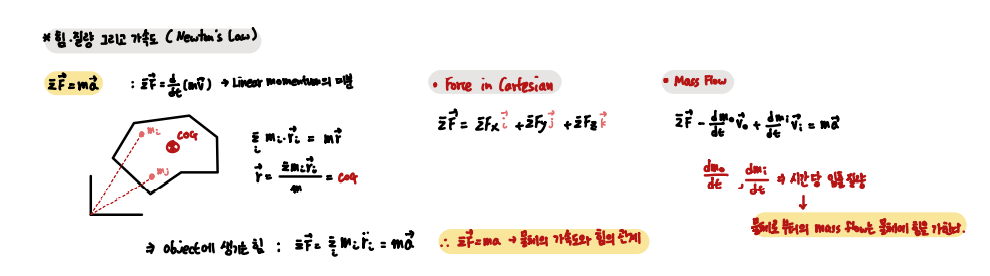 * 힘·질량 그리고 가속도 (Newton's Law)
ΣF⃗=ma⃗ : ΣF⃗=d/dt(mv⃗) → Linear momentum의 미분
mᵢ
COG
mⱼ
Σᵢ mᵢ·r⃗ᵢ = mr⃗
r⃗ = Σmᵢr⃗ᵢ/m = COG
⇒ object에 생기는 힘 : ΣF⃗= Σᵢ mᵢ r̈ᵢ = ma⃗
• Force in Cartesian
ΣF⃗ = ΣFx i⃗ + ΣFy j⃗ + ΣFz k⃗
∴ ΣF⃗=ma → 물체의 가속도와 힘의 관계
• Mass Flow
ΣF⃗ - dmₒ/dt v⃗ₒ + dmᵢ/dt v⃗ᵢ = ma⃗
dmₒ/dt , dmᵢ/dt ⇒ 시간당 입출 질량
↓
물체로 부터의 mass flow는 물체에 힘을 가한다.